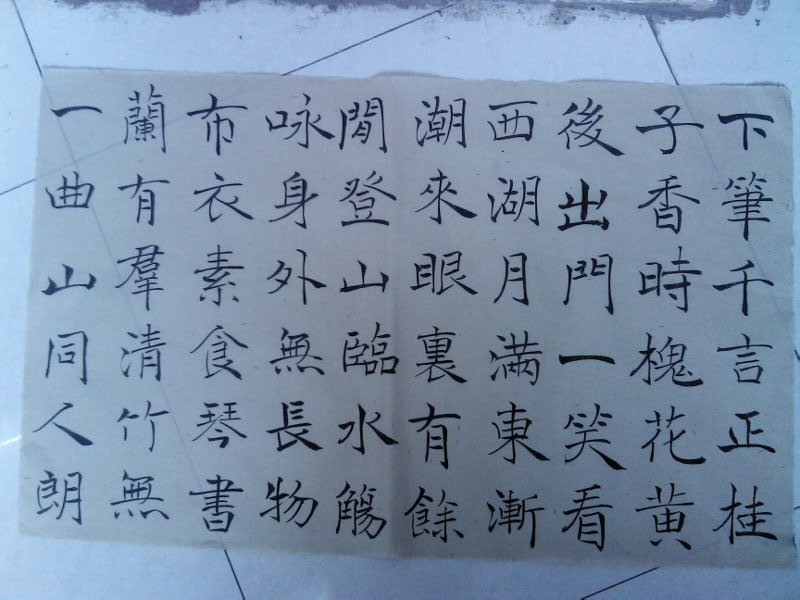 下筆千言正桂
子香時槐花黄
後出門一笑看
西湖月满東漸
潮來眼裏有餘
閒登山臨水觴
咏身外無長物
布衣素食琴書
蘭有羣清竹無
一曲山同人朗